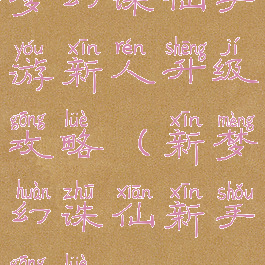 梦幻诛仙手
yóu xīn rén shēng jí
游新人升级
gōng lüè xīn mèng
攻略(新梦
huàn zhū xiān xīn shǒu
幻诛仙新手
gōng lüè